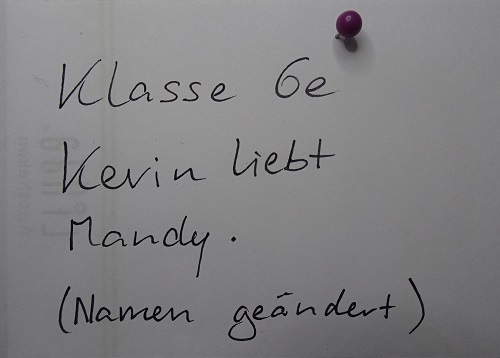 Klasse 6e
Kevin liebt
Mandy.
(Namen geändert)